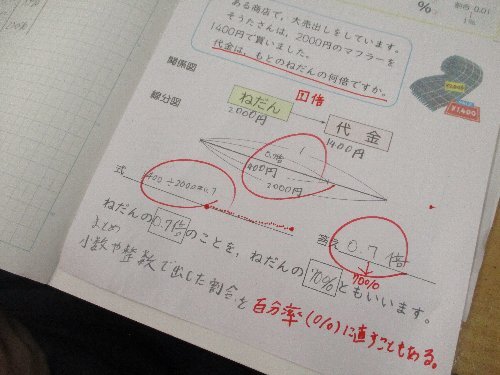 %
割合 0.01
1%
ある商店で，大売出しをしています。
そうたさんは，2000円のマフラーを
1400円で買いました。
代金は，もとのねだんの何倍ですか。
¥1400
関係図
□倍
ねだん
2000円
代金
1400円
線分図
0.7倍
1
1400円
2000円
式
1400÷2000=0.7
答え 0.7倍
70%
ねだんの0.7倍のことを，ねだんの70%ともいいます。
まとめ
小数や整数で出した割合を百分率(%)に直すこともある。